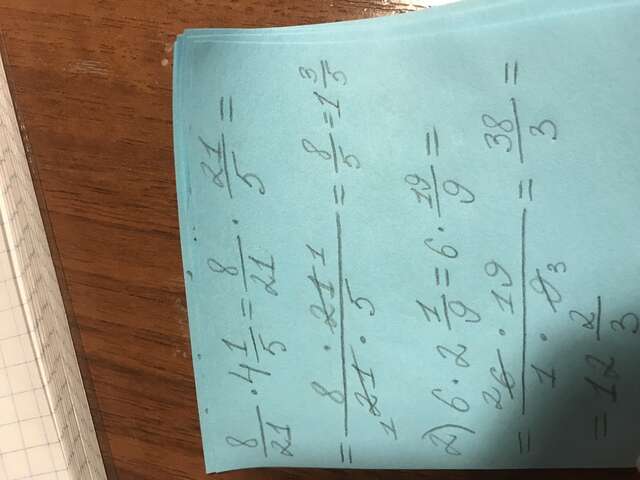 8/21 · 4 1/5 = 8/21 · 21/5 =
= 8 · 21 1 / 1 21 · 5 = 8/5 = 1 3/5
2) 6 · 2 1/9 = 6 · 19/9 =
= 2 6 · 19 / 1 · 9 3 = 38/3 =
= 12 2/3